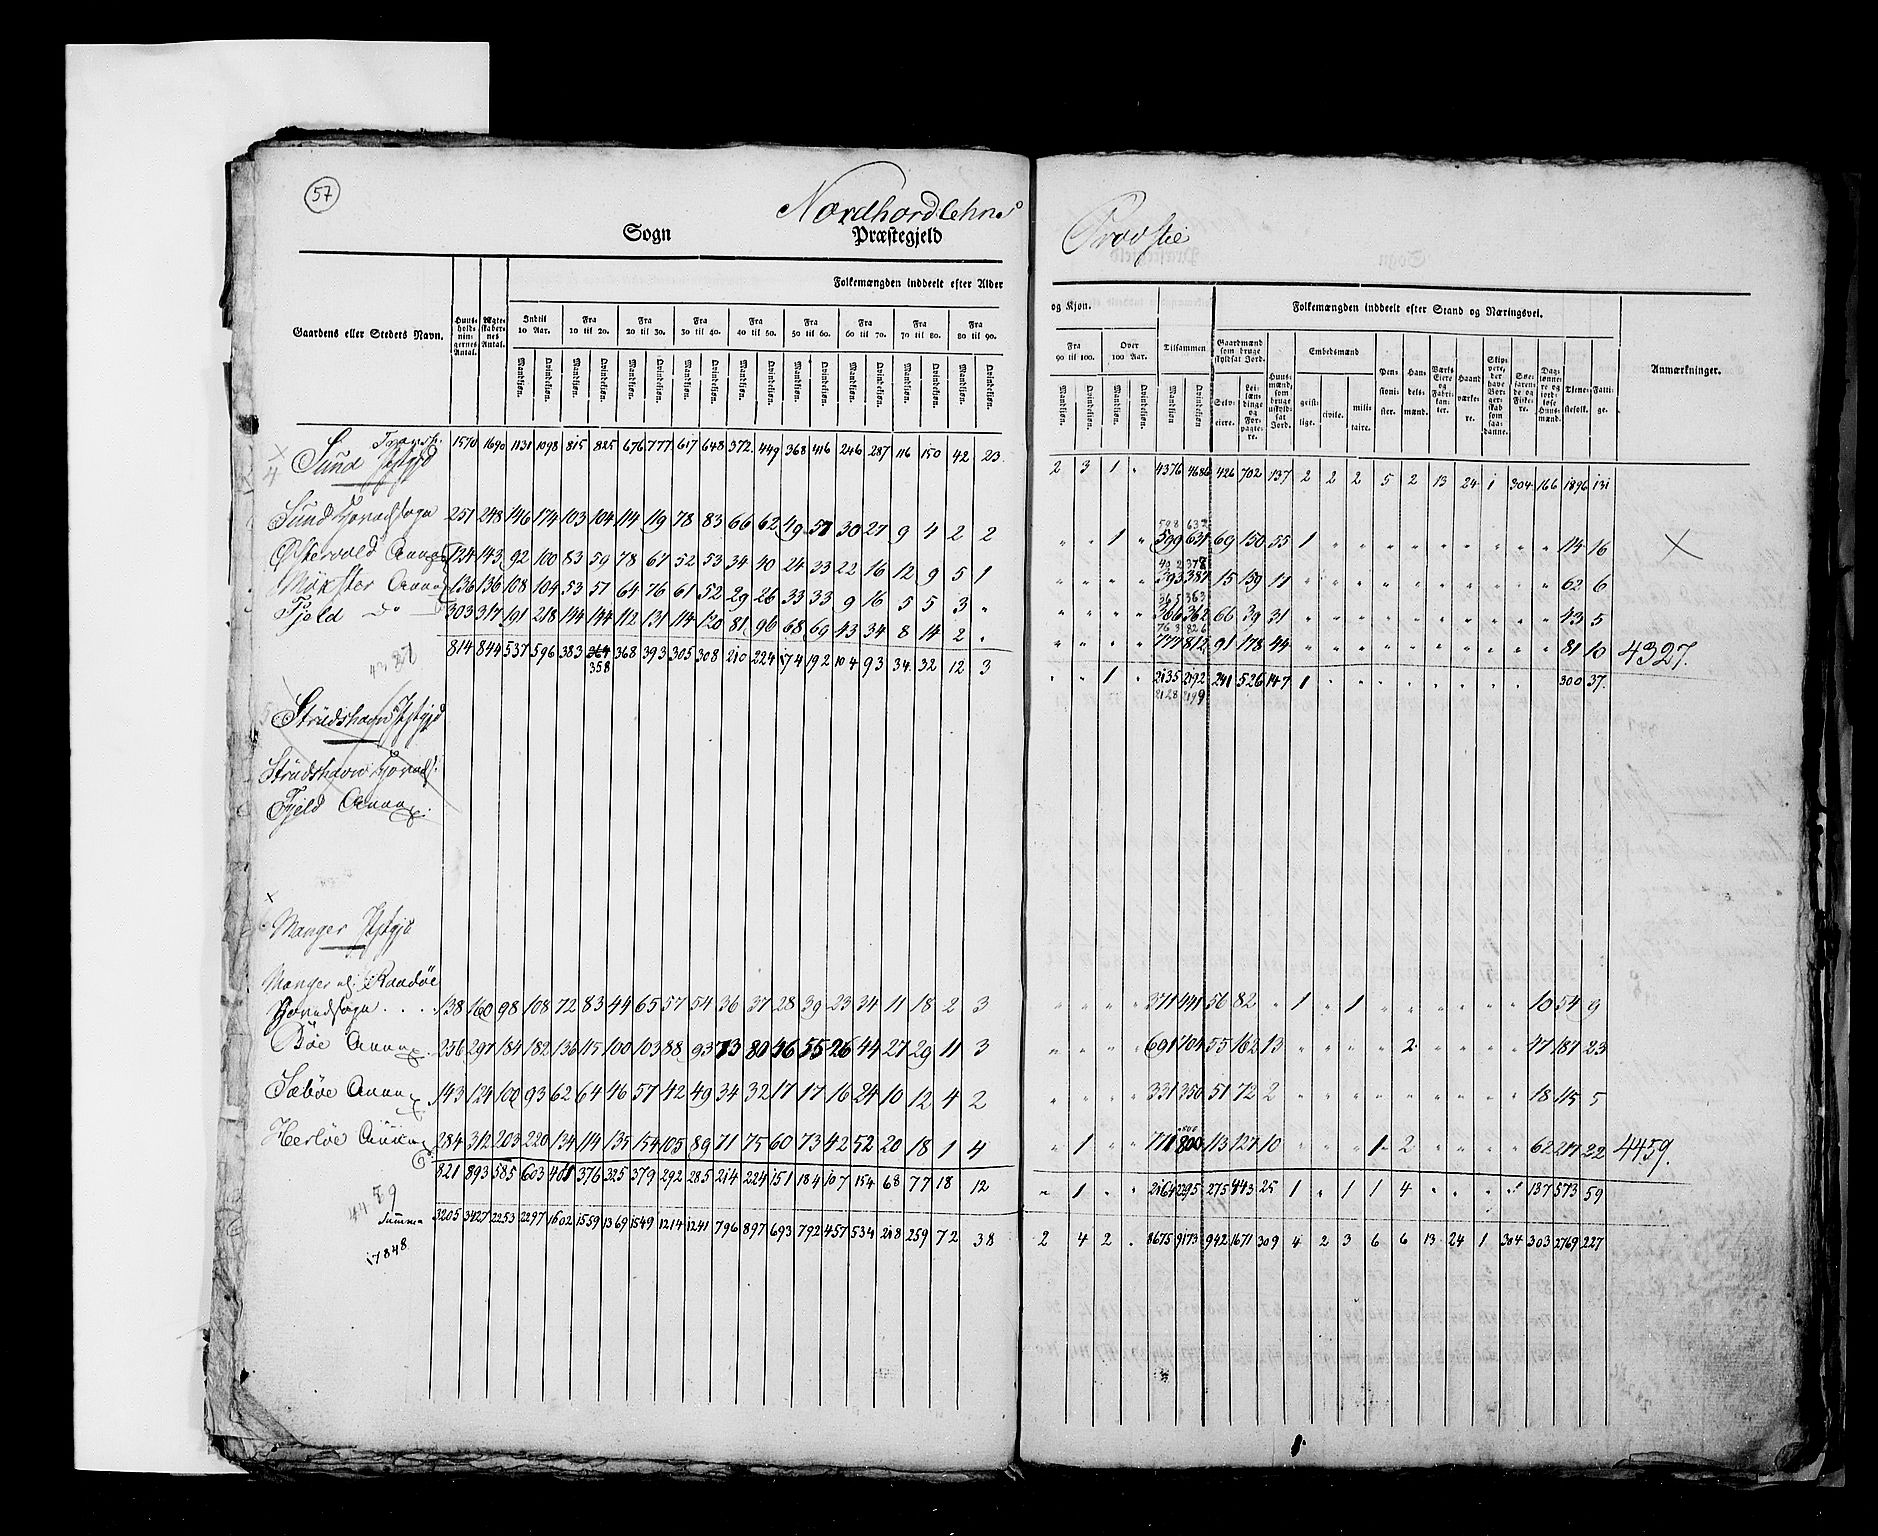 57
Nordhordlehns Provstie
Sogn Præstegjeld
Gaardens eller Steders Navn.
Huusholdningernes Antal.
Ægteskabernes Antal.
Folkemængden inddeelt efter Alder og Kjøn.
Indtil 10 Aar.
Fra 10 til 20.
Fra 20 til 30.
Fra 30 til 40.
Fra 40 til 50.
Fra 50 til 60.
Fra 60 til 70.
Fra 70 til 80.
Fra 80 til 90.
Fra 90 til 100.
Over 100 Aar.
Tilsammen
Mandkjøn. Qvindekjøn.
Folkemængden inddeelt efter Stand og Næringsvei.
Gaardmænd som bruge skyldsat Jord.
Selveiere.
Leilændinge og Forpagtere.
Huusmænd, som bruge uskyldsat Jord.
Embedsmænd
geistlige. civile. militaire.
Pensionister.
Handelsmænd.
Værks Eiere og Fabrikanter.
Haandværkere.
Skippere, der have Borgerskab som saadanne.
Søefarende og Fiskere.
Daglønnere og jordløse Huusmænd.
Tjenestefolk.
Fattige.
Anmærkninger.
Transp. 1570 1690 1131 1098 815 825 676 777 617 648 372 449 368 416 246 287 116 150 42 23 2 3 1 „ 4376 4686 426 702 137 2 2 2 5 2 13 24 1 304 166 1896 131
4 Sund Pstgjd
598 632
Sund Hovedsogn 251 248 146 174 103 104 114 119 78 83 66 62 49 57 30 27 9 4 2 2 „ „ 1 „ 599 631 69 150 55 1 „ „ „ „ „ „ „ „ „ 114 16
402 378
Østervold Annex 124 143 92 100 83 59 78 67 52 53 34 40 24 33 22 16 12 9 5 1 „ „ „ „ 393 387 15 159 17 „ „ „ „ „ „ „ „ „ „ 62 6
365 363
Møxster Annex 136 136 108 104 53 57 64 76 61 52 29 26 33 33 9 16 5 5 3 „ „ „ „ „ 366 362 66 39 31 „ „ „ „ „ „ „ „ „ „ 43 5
763 826
Fjeld do 303 317 191 218 144 144 112 131 114 120 81 96 68 69 43 34 8 14 2 „ „ „ „ „ 777 812 91 178 44 „ „ „ „ „ „ „ „ „ „ 81 10 4327.
4327
814 844 537 596 383 364 368 393 305 308 210 224 174 192 104 93 34 32 12 3 „ „ 1 „ 2135 2192 241 526 147 1 „ „ „ „ „ „ „ „ „ 300 37.
358 2128 2199
5 Strudshavn Pstgjd
Strudshavn Hoveds.
Fjeld Annex.
6 Manger Pstgjd
Manger el: Raadøe
Hovedsogn . . . . 138 160 98 108 72 83 44 65 57 54 36 37 28 39 23 34 11 18 2 3 „ „ „ „ 371 441 56 82 „ 1 „ 1 „ „ „ „ „ „ 10 54 9
Bøe Annex 256 297 184 182 136 115 100 103 88 93 73 80 46 55 26 44 27 29 11 3 „ „ „ „ 691 704 55 162 13 „ „ „ „ 2 „ „ „ „ 47 187 23
Sæbøe Annex 143 124 100 93 62 64 46 57 42 49 34 32 17 17 16 24 10 12 4 2 „ „ „ „ 331 350 51 72 2 „ „ „ „ „ „ „ „ „ 18 115 5
800
Herløe Annex 284 312 203 220 134 114 135 154 105 89 71 75 60 73 42 52 20 18 1 4 „ 1 „ „ 771 800 113 127 10 „ „ „ 1 2 „ „ „ „ 62 217 22 4459.
821 893 585 603 401 376 325 379 292 285 214 224 151 184 107 154 68 77 18 12 „ 1 „ „ 2164 2295 275 443 25 1 „ 1 1 4 „ „ „ „ 137 573 59
4459
Summa 3205 3427 2253 2297 1602 1559 1369 1549 1214 1241 796 897 693 792 457 534 218 259 72 38 2 4 2 „ 8675 9173 942 1671 309 4 2 3 6 6 13 24 1 304 303 2769 227
17848